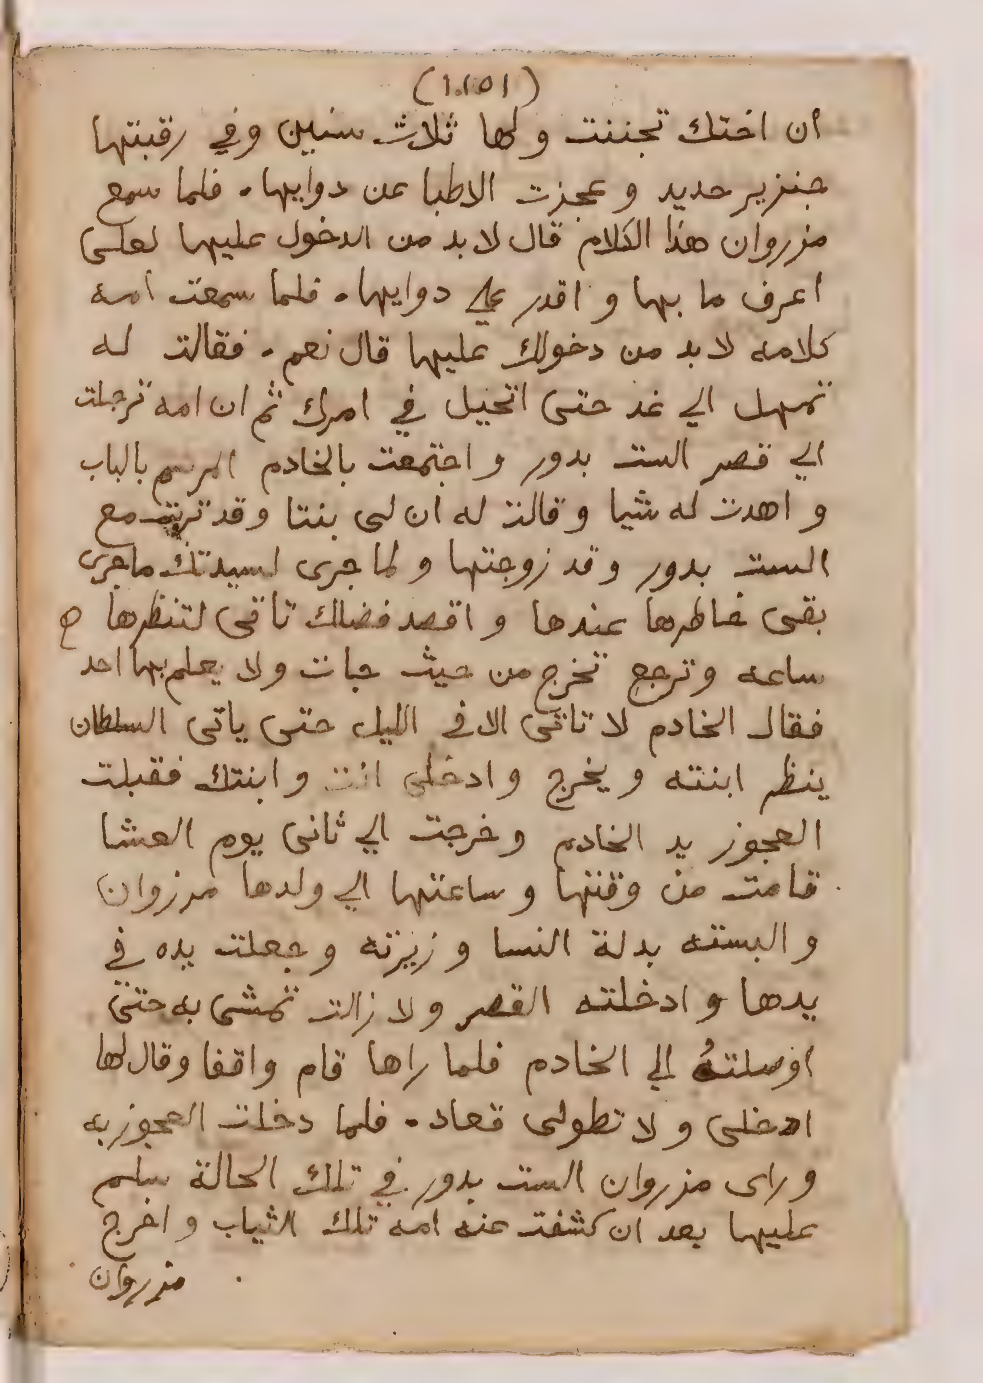 (١٠١٥١)
ان اختك تجننت و لها ثلاث سنين وفي رقبتها
جنزير حديد و عجزت الاطبا عن دوايها . فلما سمع
مزروان هذا الكلام قال لا بد من الدخول عليها لعلى
اعرف ما بها و اقدر على دوايها . فلما سمعت امه
كلامه لا بد من دخولك عليها قال نعم . فقالت له
تمهل الي غد حتى اتحيل في امرك ثم ان امه ترجلت
الي قصر الست بدور و اجتمعت بالخادم المرسم بالباب
و اهدت له شيا و قالت له ان لى بنتا وقد تربت مع
الست بدور وقد زوجتها و لما جرى لسيدتك ماجرى
بقى خاطرها عندها و اقصد فضلك تاتى لتنظرها
ساعه وترجع تخرج من حيث جات ولا يعلم بها احد
فقال الخادم لا تاتى الا في الليل حتى ياتى السلطان
ينظر ابنته ويخرج وادخلى انت وابنتك فقبلت
العجوز يد الخادم وخرجت الي ثانى يوم العشا
قامت من وقتها و ساعتها الي ولدها مرزوان
و البسته بدلة النسا و زيرته وجعلت يده في
يدها و ادخلته القصر ولا زالت تمشى به حتى
اوصلتهُ الي الخادم فلما راها قام واقفا وقال لها
ادخلى ولا تطولى قعاد . فلما دخلت العجوز به
و راى مزروان الست بدور في تلك الحالة سلم
عليها بعد ان كشفت عنه امه تلك الثياب و اخرج
مزروان